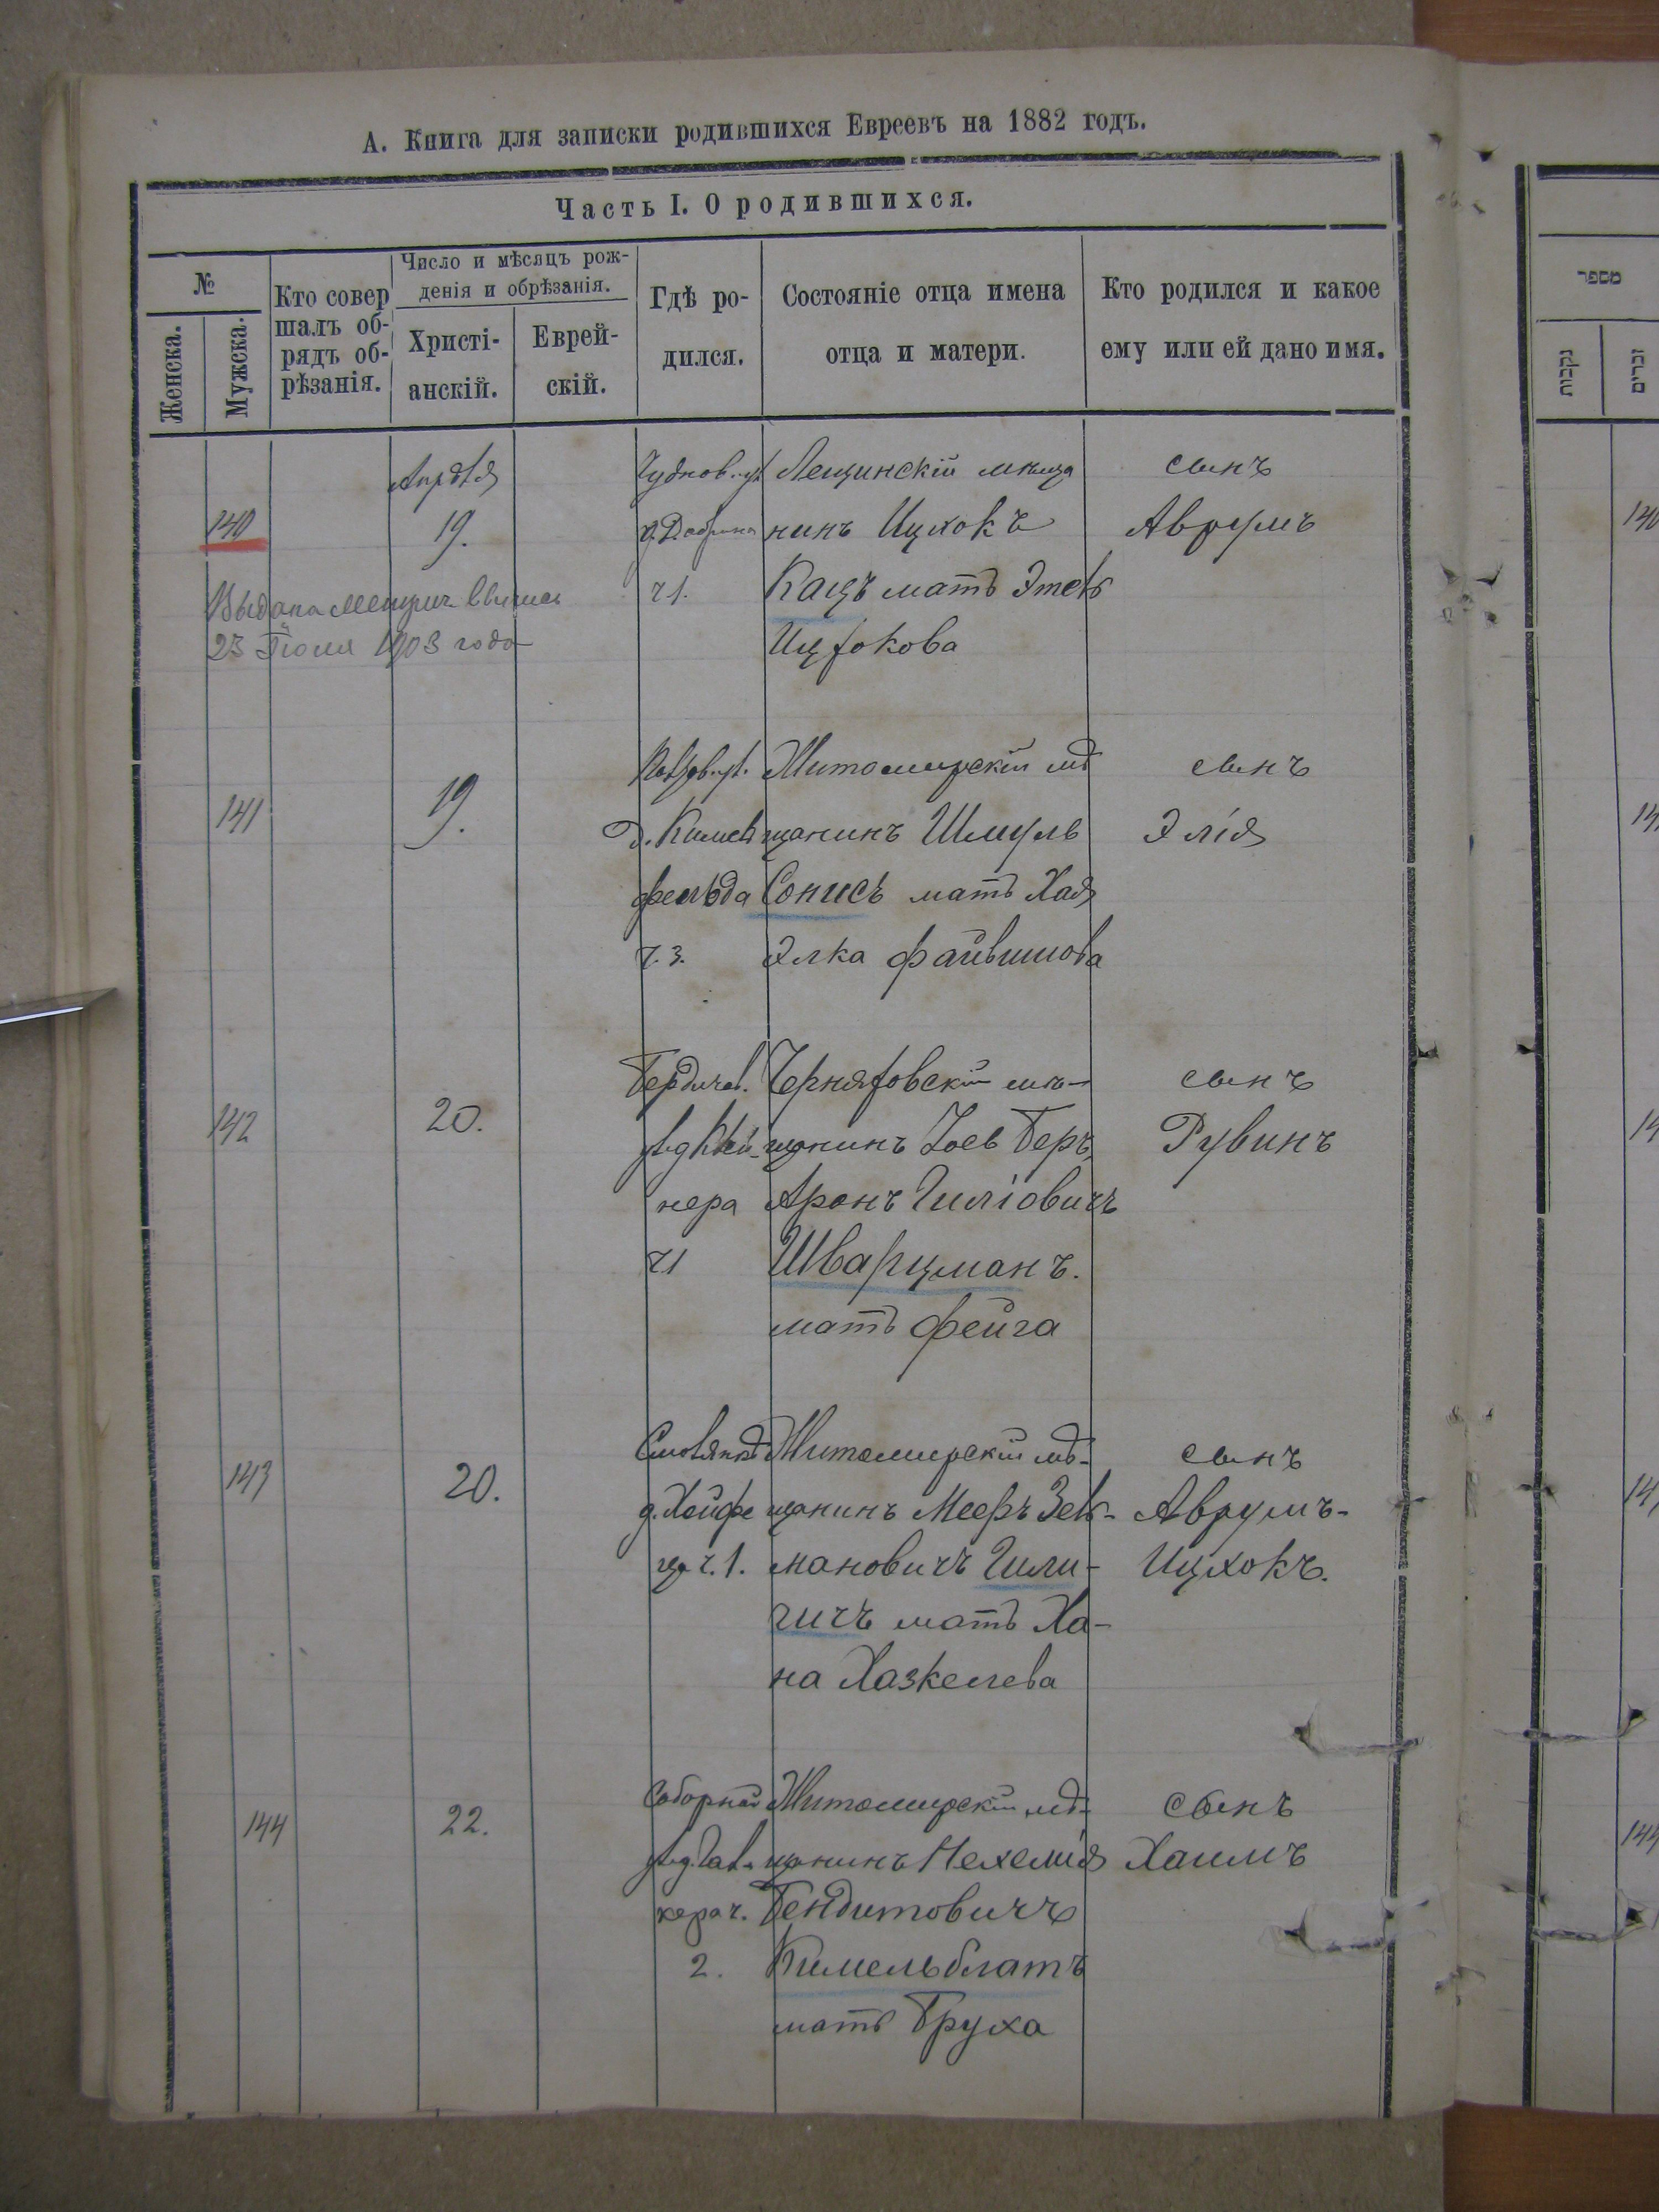 А. Книга для записки родившихся Евреевъ на 1882 годъ.
Часть I. О родившихся.
№
Женска.
Мужска.
Кто совер
шалъ об-
рядъ об-
рѣзанія.
Число и мѣсяцъ рож-
денія и обрѣзанія.
Христі-
анскій.
Еврей-
скій.
Гдѣ ро-
дился.
Состояніе отца имена
отца и матери.
Кто родился и какое
ему или ей дано имя.
מספר
נקבות
זכרים
Апрѣля
140
19.
Выдана выпись
23 Іюля 1903 года
Чуднов. ул
ч 1.
Лещинскій мѣща
нинъ Ицхокъ
Кацъ мать Этель
Ицхокова
сынъ
Аврумъ
141
19.
д. Кимель
фельда
ч. 3.
Житомирскій мѣ
щанинъ Шмуль
Сонисъ мать Хая
Элка Файвишова
сынъ
Элія
142
20.
Бердичев.
нера
ч 1
Черняховскій мѣ-
щанинъ Іось Беръ
Аронъ Гиліовичъ
Шварцманъ.
мать Фейга
сынъ
Рувинъ
143
20.
д. Хейфе
ца ч. 1.
Житомирскій мѣ-
щанинъ Мееръ Зель-
мановичъ Гили-
гичъ мать Ха-
на Хазкелева
сынъ
Аврумъ-
Ицхокъ.
144
22.
Соборная
кера ч.
2.
Житомирскій мѣ-
щанинъ Нехемія
Бендитовичъ
Кимельблатъ
мать Бруха
сынъ
Хаимъ
140
14
14
14
144